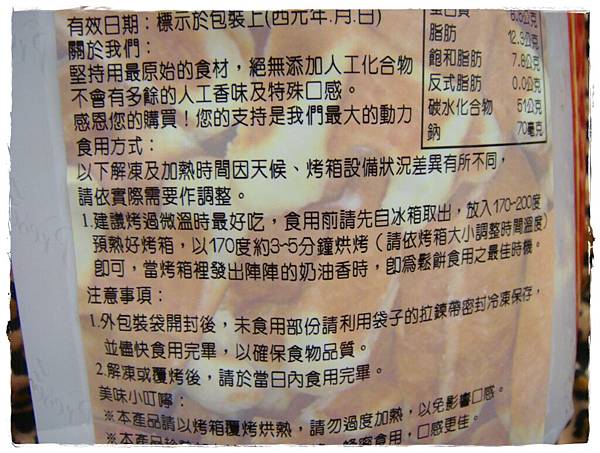 有效日期：標示於包裝上(西元年.月.日)
關於我們：
堅持用最原始的食材，絕無添加人工化合物
不會有多餘的人工香味及特殊口感。
感恩您的購買！您的支持是我們最大的動力
食用方式：
以下解凍及加熱時間因天候、烤箱設備狀況差異有所不同，
請依實際需要作調整。
1.建議烤過微溫時最好吃，食用前請先自冰箱取出，放入170-200度
預熱好烤箱，以170度約3-5分鐘烘烤（請依烤箱大小調整時間溫度）
即可，當烤箱裡發出陣陣的奶油香時，即為鬆餅食用之最佳時機。
注意事項：
1.外包裝袋開封後，未食用部份請利用袋子的拉鍊帶密封冷凍保存，
並儘快食用完畢，以確保食物品質。
2.解凍或覆烤後，請於當日內食用完畢。
美味小叮嚀：
※本產品請以烤箱覆烤烘熱，請勿過度加熱，以免影響口感。
※本產品
蜂蜜食用，口感更佳。
蛋白質 6.6公克
脂肪 12.3公克
飽和脂肪 7.8公克
反式脂肪 0.0公克
碳水化合物 51公克
鈉 70毫克